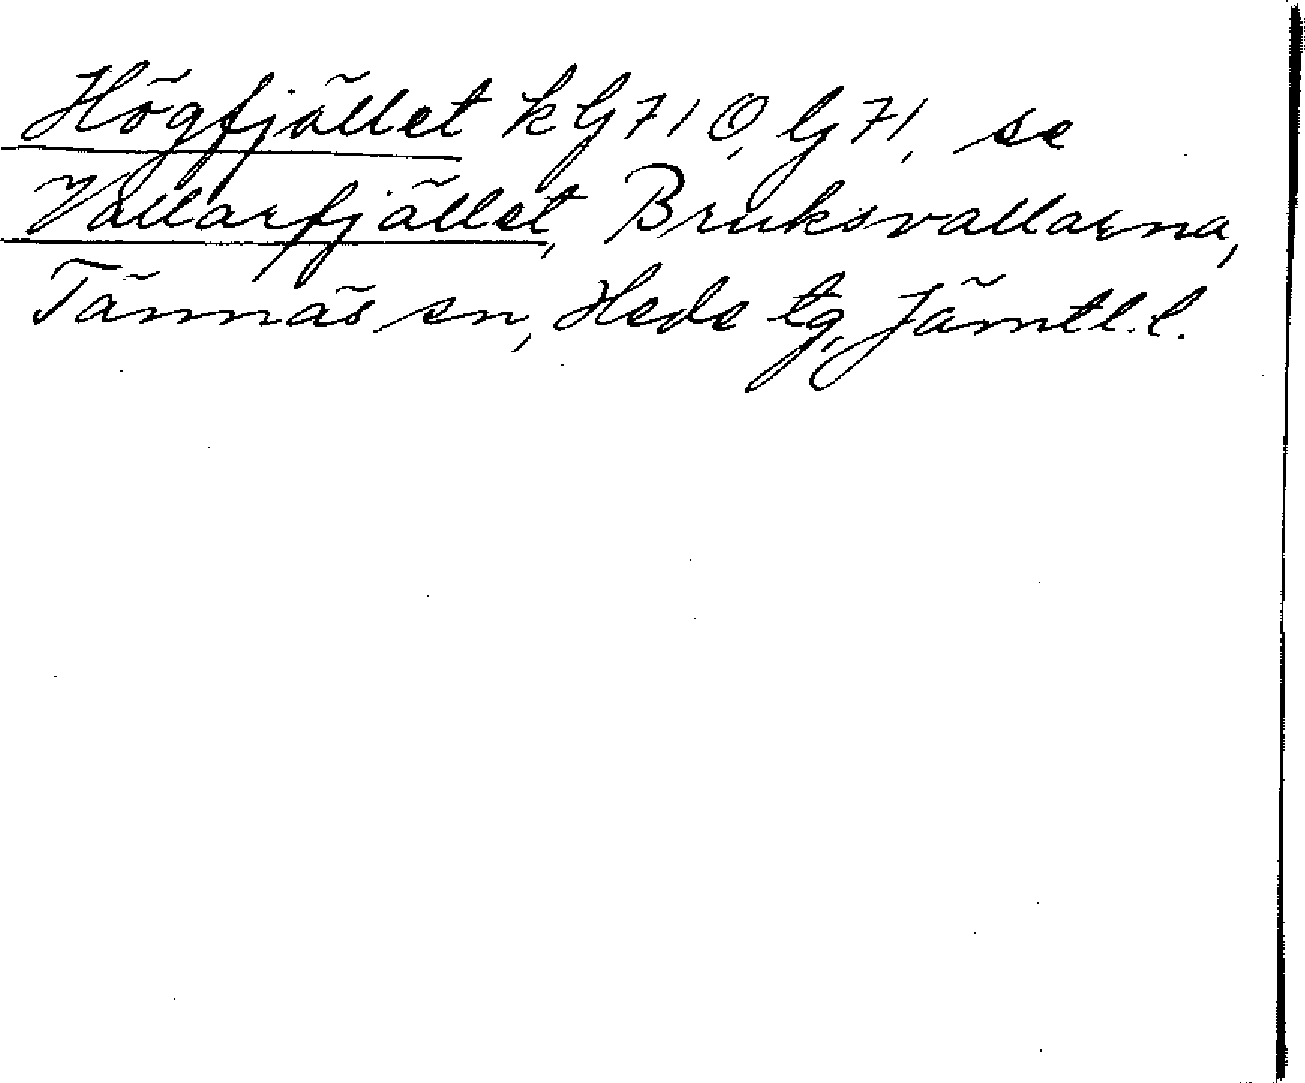 Högfjället kG 71 Ö, G 71, se
Vallarfjället, Bruksvallarna,
Tännäs sn, Hede tg, Jämtl. l.